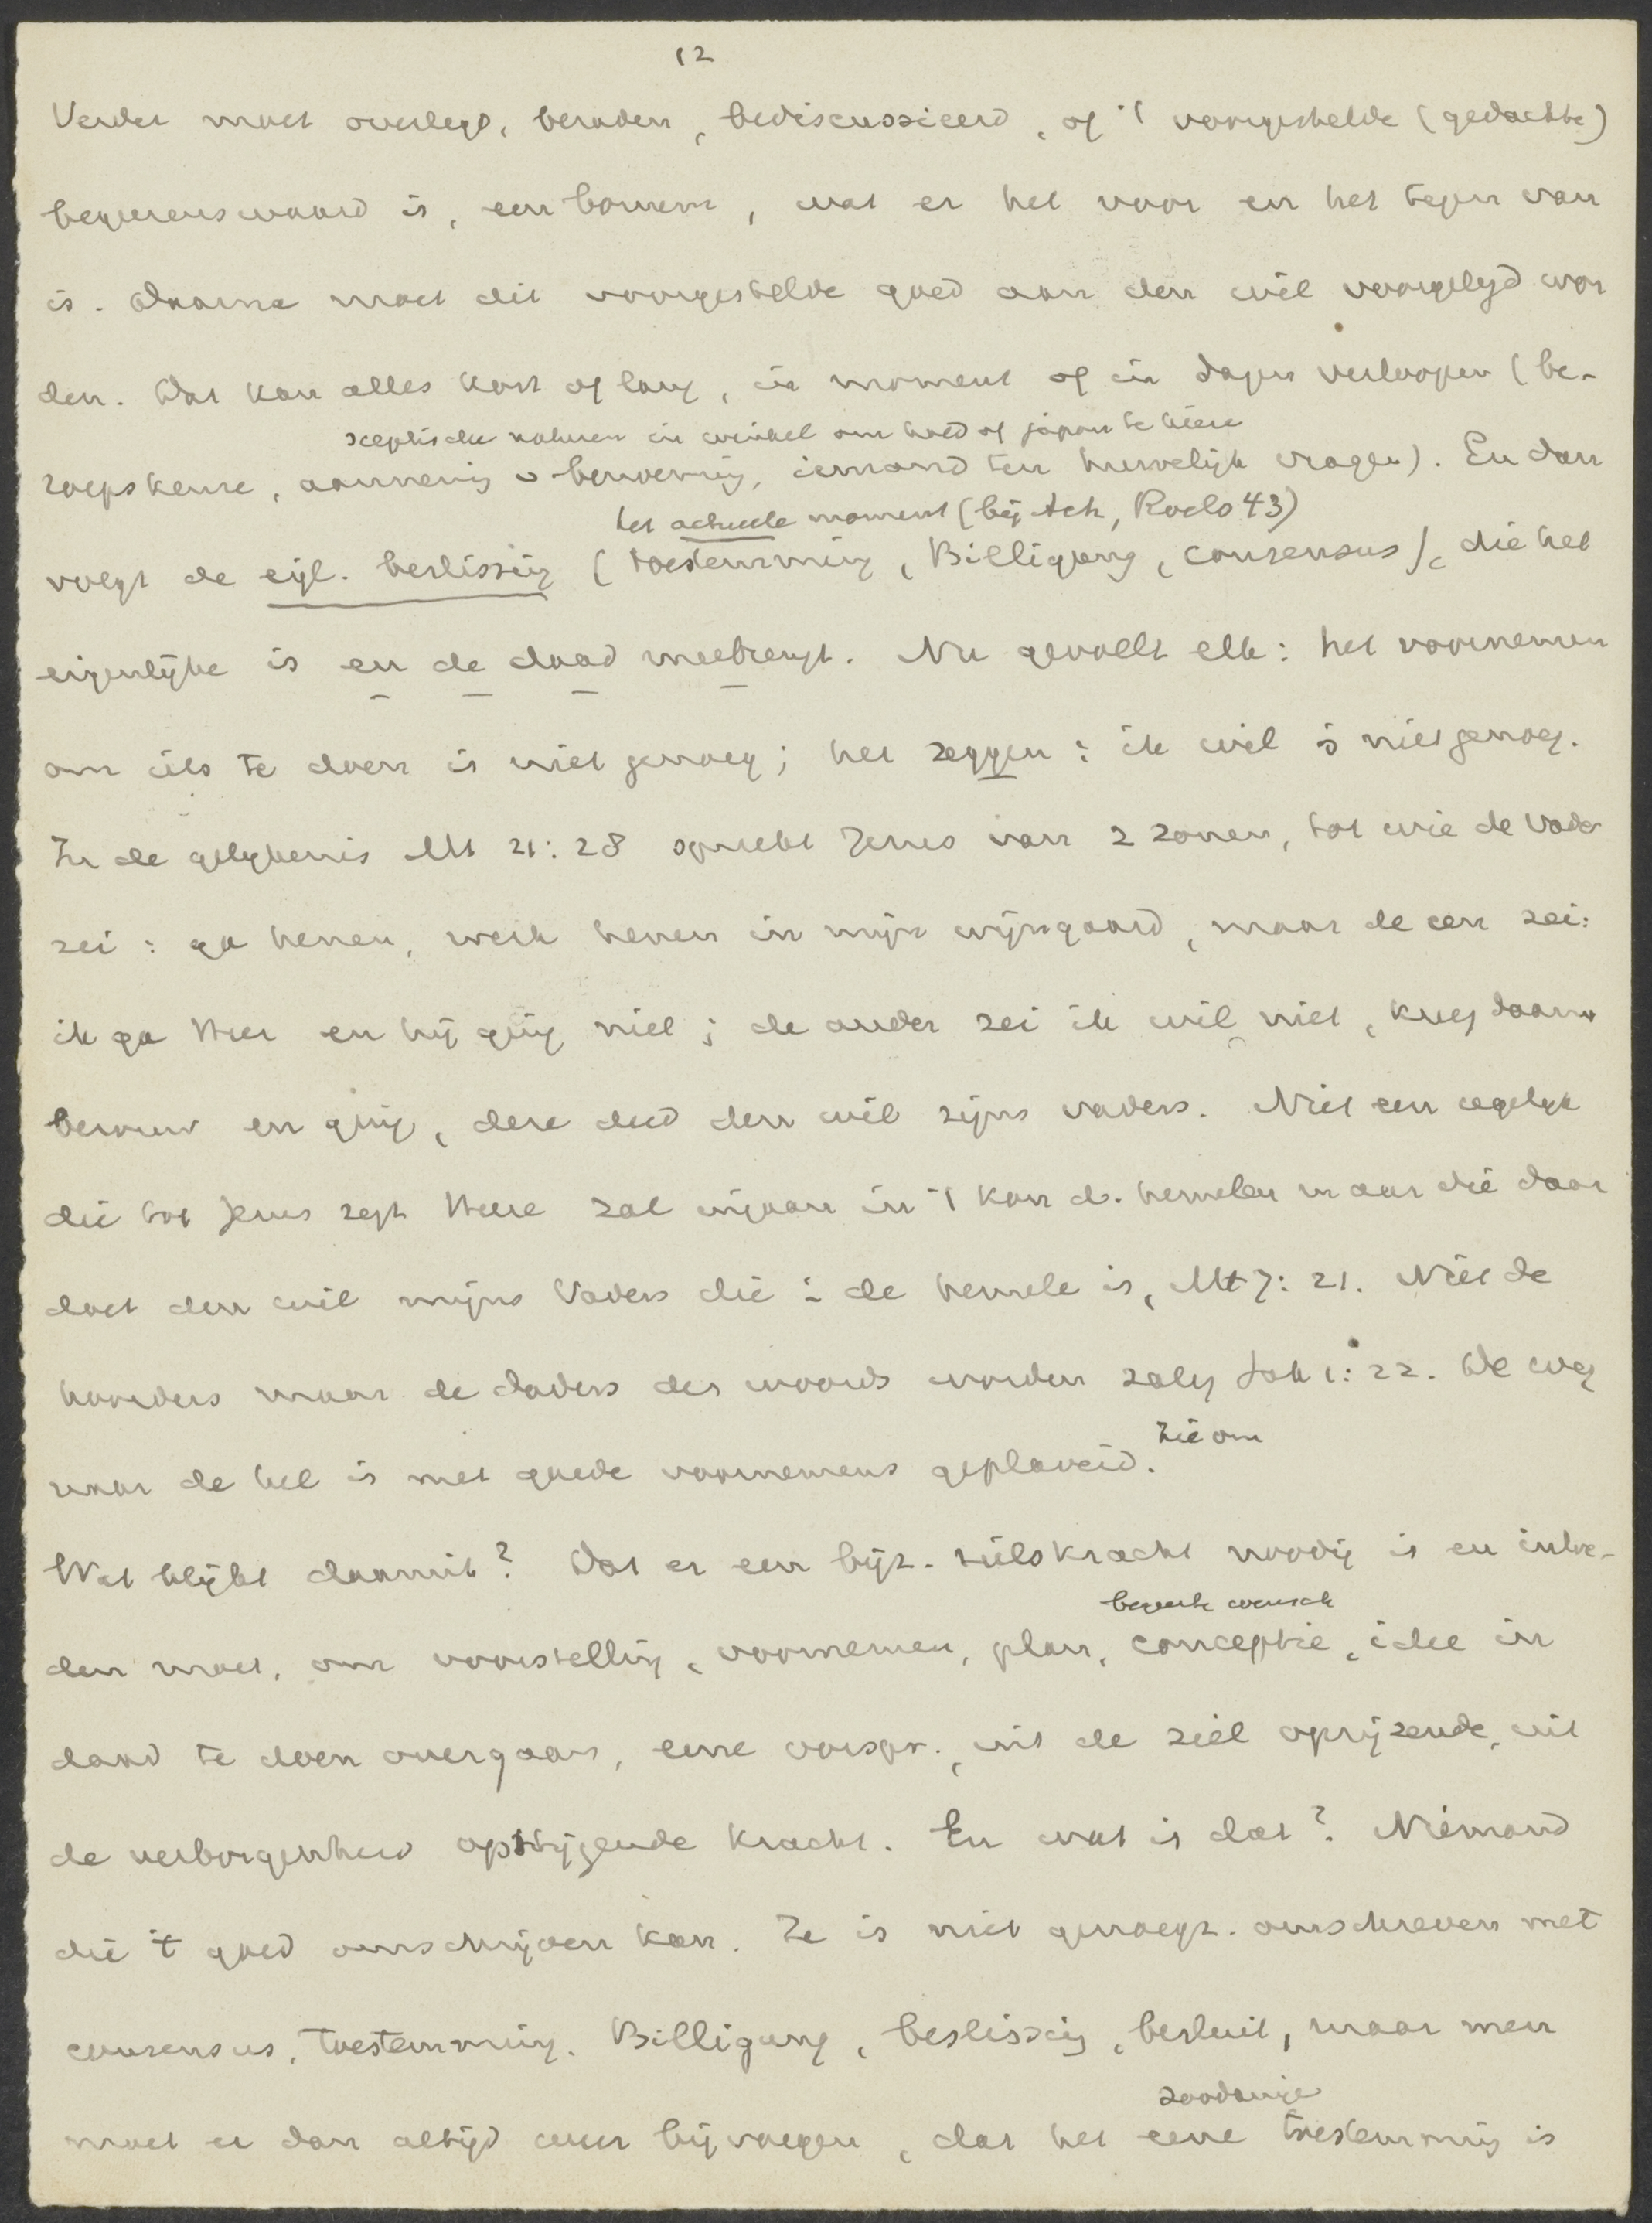 12
Verder moet overlegd, beraden, bediscussieerd, of 't voorgestelde (gedachte)
begeerenswaard is, een bonum, wat er het voor en het tegen van
is. Daarna moet dit voorgestelde goed aan den wil voorgelegd wor
den. Dat kan alles kort of lang, in moment of in dagen verloopen (be-
sceptische naturen in winkel om hoed of japon te kieze
roepskeuze, aanneming v benoeming, iemand ten huwelijk vragen). En dan
het actueele moment (bij Ach, Roels 43)
volgt de eigl. beslissing (toestemming, Billigung, consensus), die het
eigenlijke is en de daad meebrengt. Nu gevoelt elk: het voornemen
om iets te doen is niet genoeg; het zeggen: ik wil is niet genoeg.
In de gelykenis Mt 21:28 spreekt Jezus van 2 zonen, tot wie de Vader
zei: ga henen, werk henen in mijn wijngaard, maar de een zei:
ik ga Heer en hij ging niet; de ander zei ik wil niet, kreeg daarna
berouw en ging, deze deed den wil zijns vaders. Niet een iegelyk
die tot Jezus zegt Heere zal ingaan in 't kon d. hemelen maar die daar
doet den wil mijns Vaders die i de hemele is, Mt 7:21. Niet de
hoorders maar de daders des woords worden zalig Jak 1:22. De weg
naar de hel is met goede voornemens geplaveid. Zie om
Wat blijkt daaruit? Dat er een bijz. wilskracht noodig is en intre-
begeerte wensch
den moet, om voorstelling, voornemen, plan, conceptie, idee in
daad te doen overgaan, eene oorspr., uit de ziel oprijzende, uit
de verborgenheid opstijgende kracht. En wat is dat? Niemand
die 't goed omschrijven kan. Ze is niet genoegz. omschreven met
consensus, toestemming, Billigung, beslissing, besluit, maar men
zoodanige
moet er dan altijd weer bijvoegen, dat het eene toestemming is